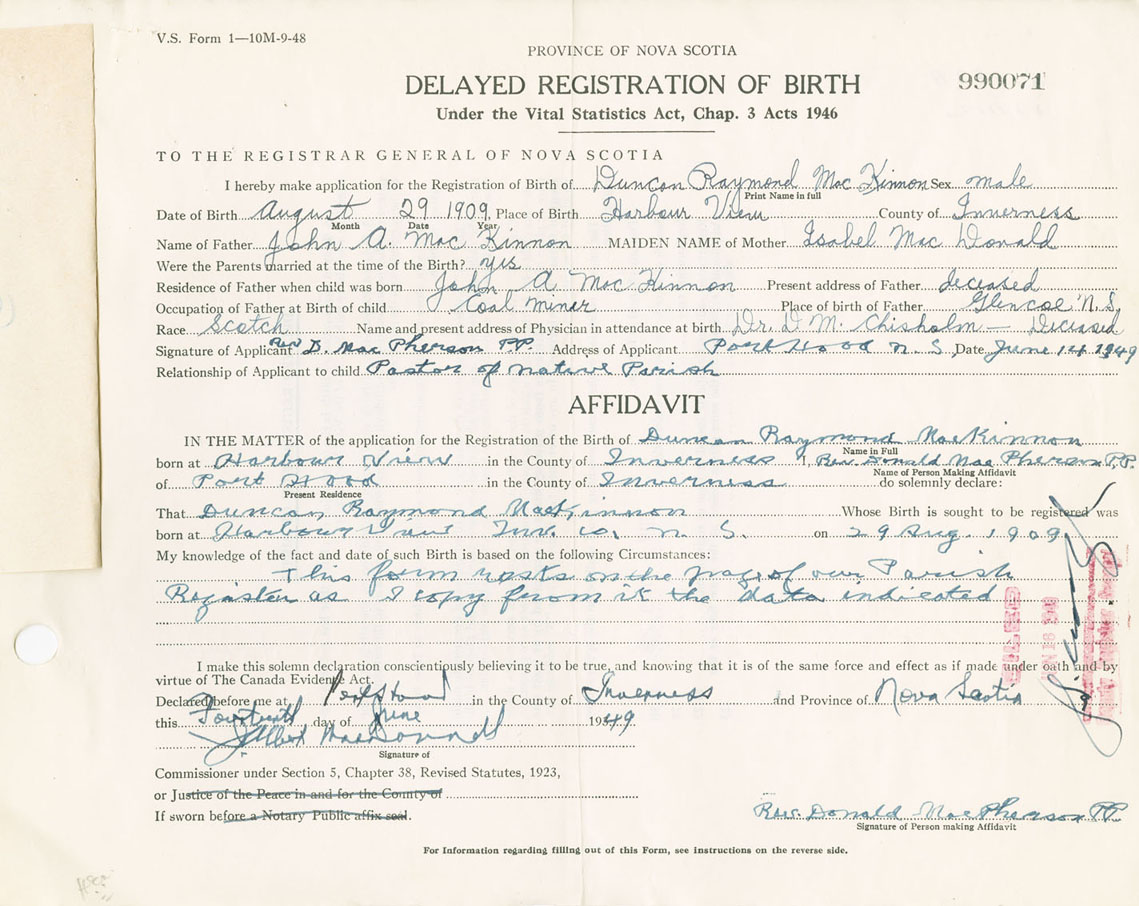 V.S. Form 1—10M-9-48
PROVINCE OF NOVA SCOTIA
DELAYED REGISTRATION OF BIRTH 990071
Under the Vital Statistics Act, Chap. 3 Acts 1946
TO THE REGISTRAR GENERAL OF NOVA SCOTIA
I hereby make application for the Registration of Birth of Duncan Raymond Mac Kinnon Sex male
Print Name in full
Date of Birth August 29 1909 Place of Birth Harbour View County of Inverness
Month Date Year
Name of Father John A. Mac Kinnon MAIDEN NAME of Mother Isabel Mac Donald
Were the Parents married at the time of the Birth? yes
Residence of Father when child was born John A Mac Kinnon Present address of Father deceased
Occupation of Father at Birth of child Coal miner Place of birth of Father Glencoe N.S.
Race Scotch Name and present address of Physician in attendance at birth Dr. D. M. Chisholm — Deceased
Signature of Applicant Rev D. Mac Pherson P.P. Address of Applicant Port Hood N. S. Date June 14 1949
Relationship of Applicant to child Pastor of native Parish
AFFIDAVIT
IN THE MATTER of the application for the Registration of the Birth of Duncan Raymond MacKinnon
Name in Full
born at Harbour View in the County of Inverness I, Rev. Donald Mac Pherson P.P.
Name of Person Making Affidavit
of Port Hood in the County of Inverness do solemnly declare:
Present Residence
That Duncan Raymond MacKinnon Whose Birth is sought to be registered was
born at Harbour View Inv. Co. N. S. on 29 Aug. 1909
My knowledge of the fact and date of such Birth is based on the following Circumstances:
This form rests on the page of our Parish
Register as I copy from it the data indicated
I make this solemn declaration conscientiously believing it to be true, and knowing that it is of the same force and effect as if made under oath and by
virtue of The Canada Evidence Act.
Declared before me at Port Hood in the County of Inverness and Province of Nova Scotia
this Fourteenth day of June 1949
J. Albert MacDonald
Signature of
Commissioner under Section 5, Chapter 38, Revised Statutes, 1923,
or Justice of the Peace in and for the County of
If sworn before a Notary Public affix seal.
Rev. Donald MacPherson P.P.
Signature of Person making Affidavit
For Information regarding filling out of this Form, see instructions on the reverse side.